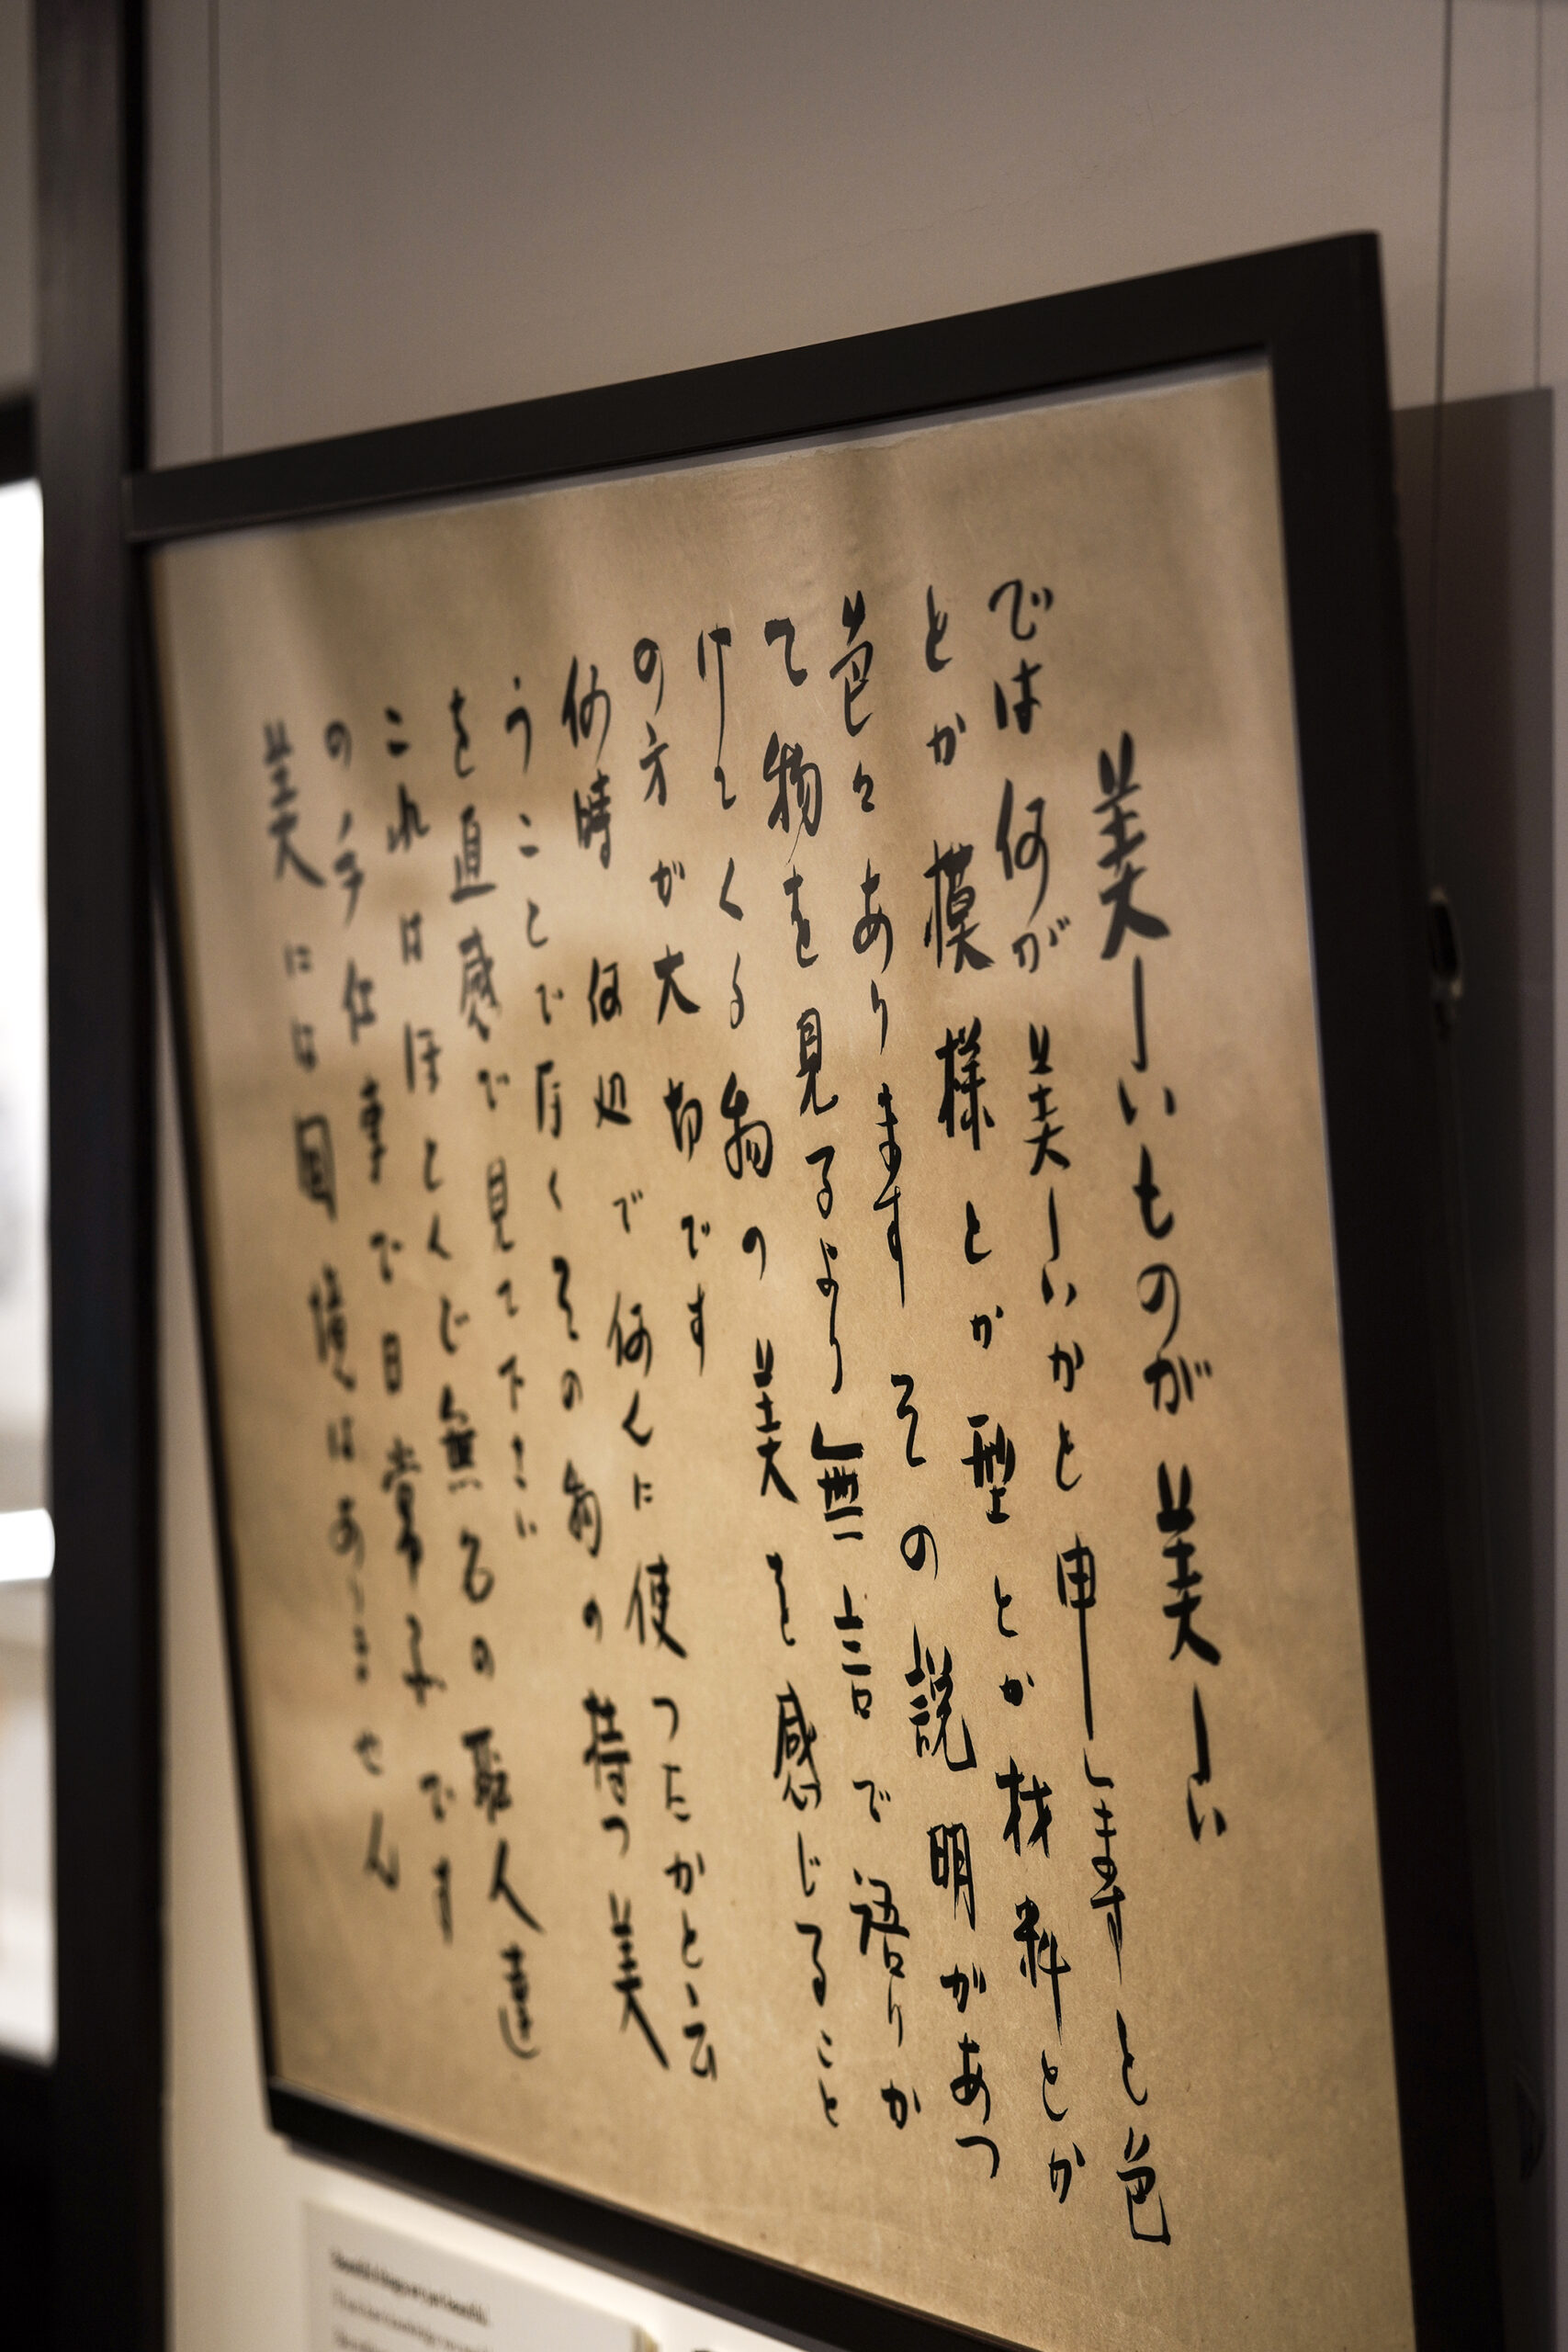 美しいものが美しい
では何が美しいかと申しますと色
とか模様とか型とか材料とか
色々あります その説明があつ
て物を見るより無言で語りか
けてくる物の美を感じること
の方が大切です
何時 何処で何んに使つたかと云
うことで その物の持つ美
を直感で見て下さい
これはほとんど無名の職人達
の手仕事で日常品です
美には国境はありません